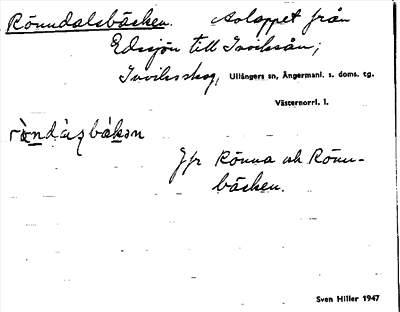 Rönndalsbäcken. Avloppet från
Edssjön till Inviksån;
Inviksskog, Ullångers sn, Ångermanl. s. doms. tg.
Västernorrl. l.
Jfr Rönna och Rönn-
bäcken.
Sven Hiller 1947